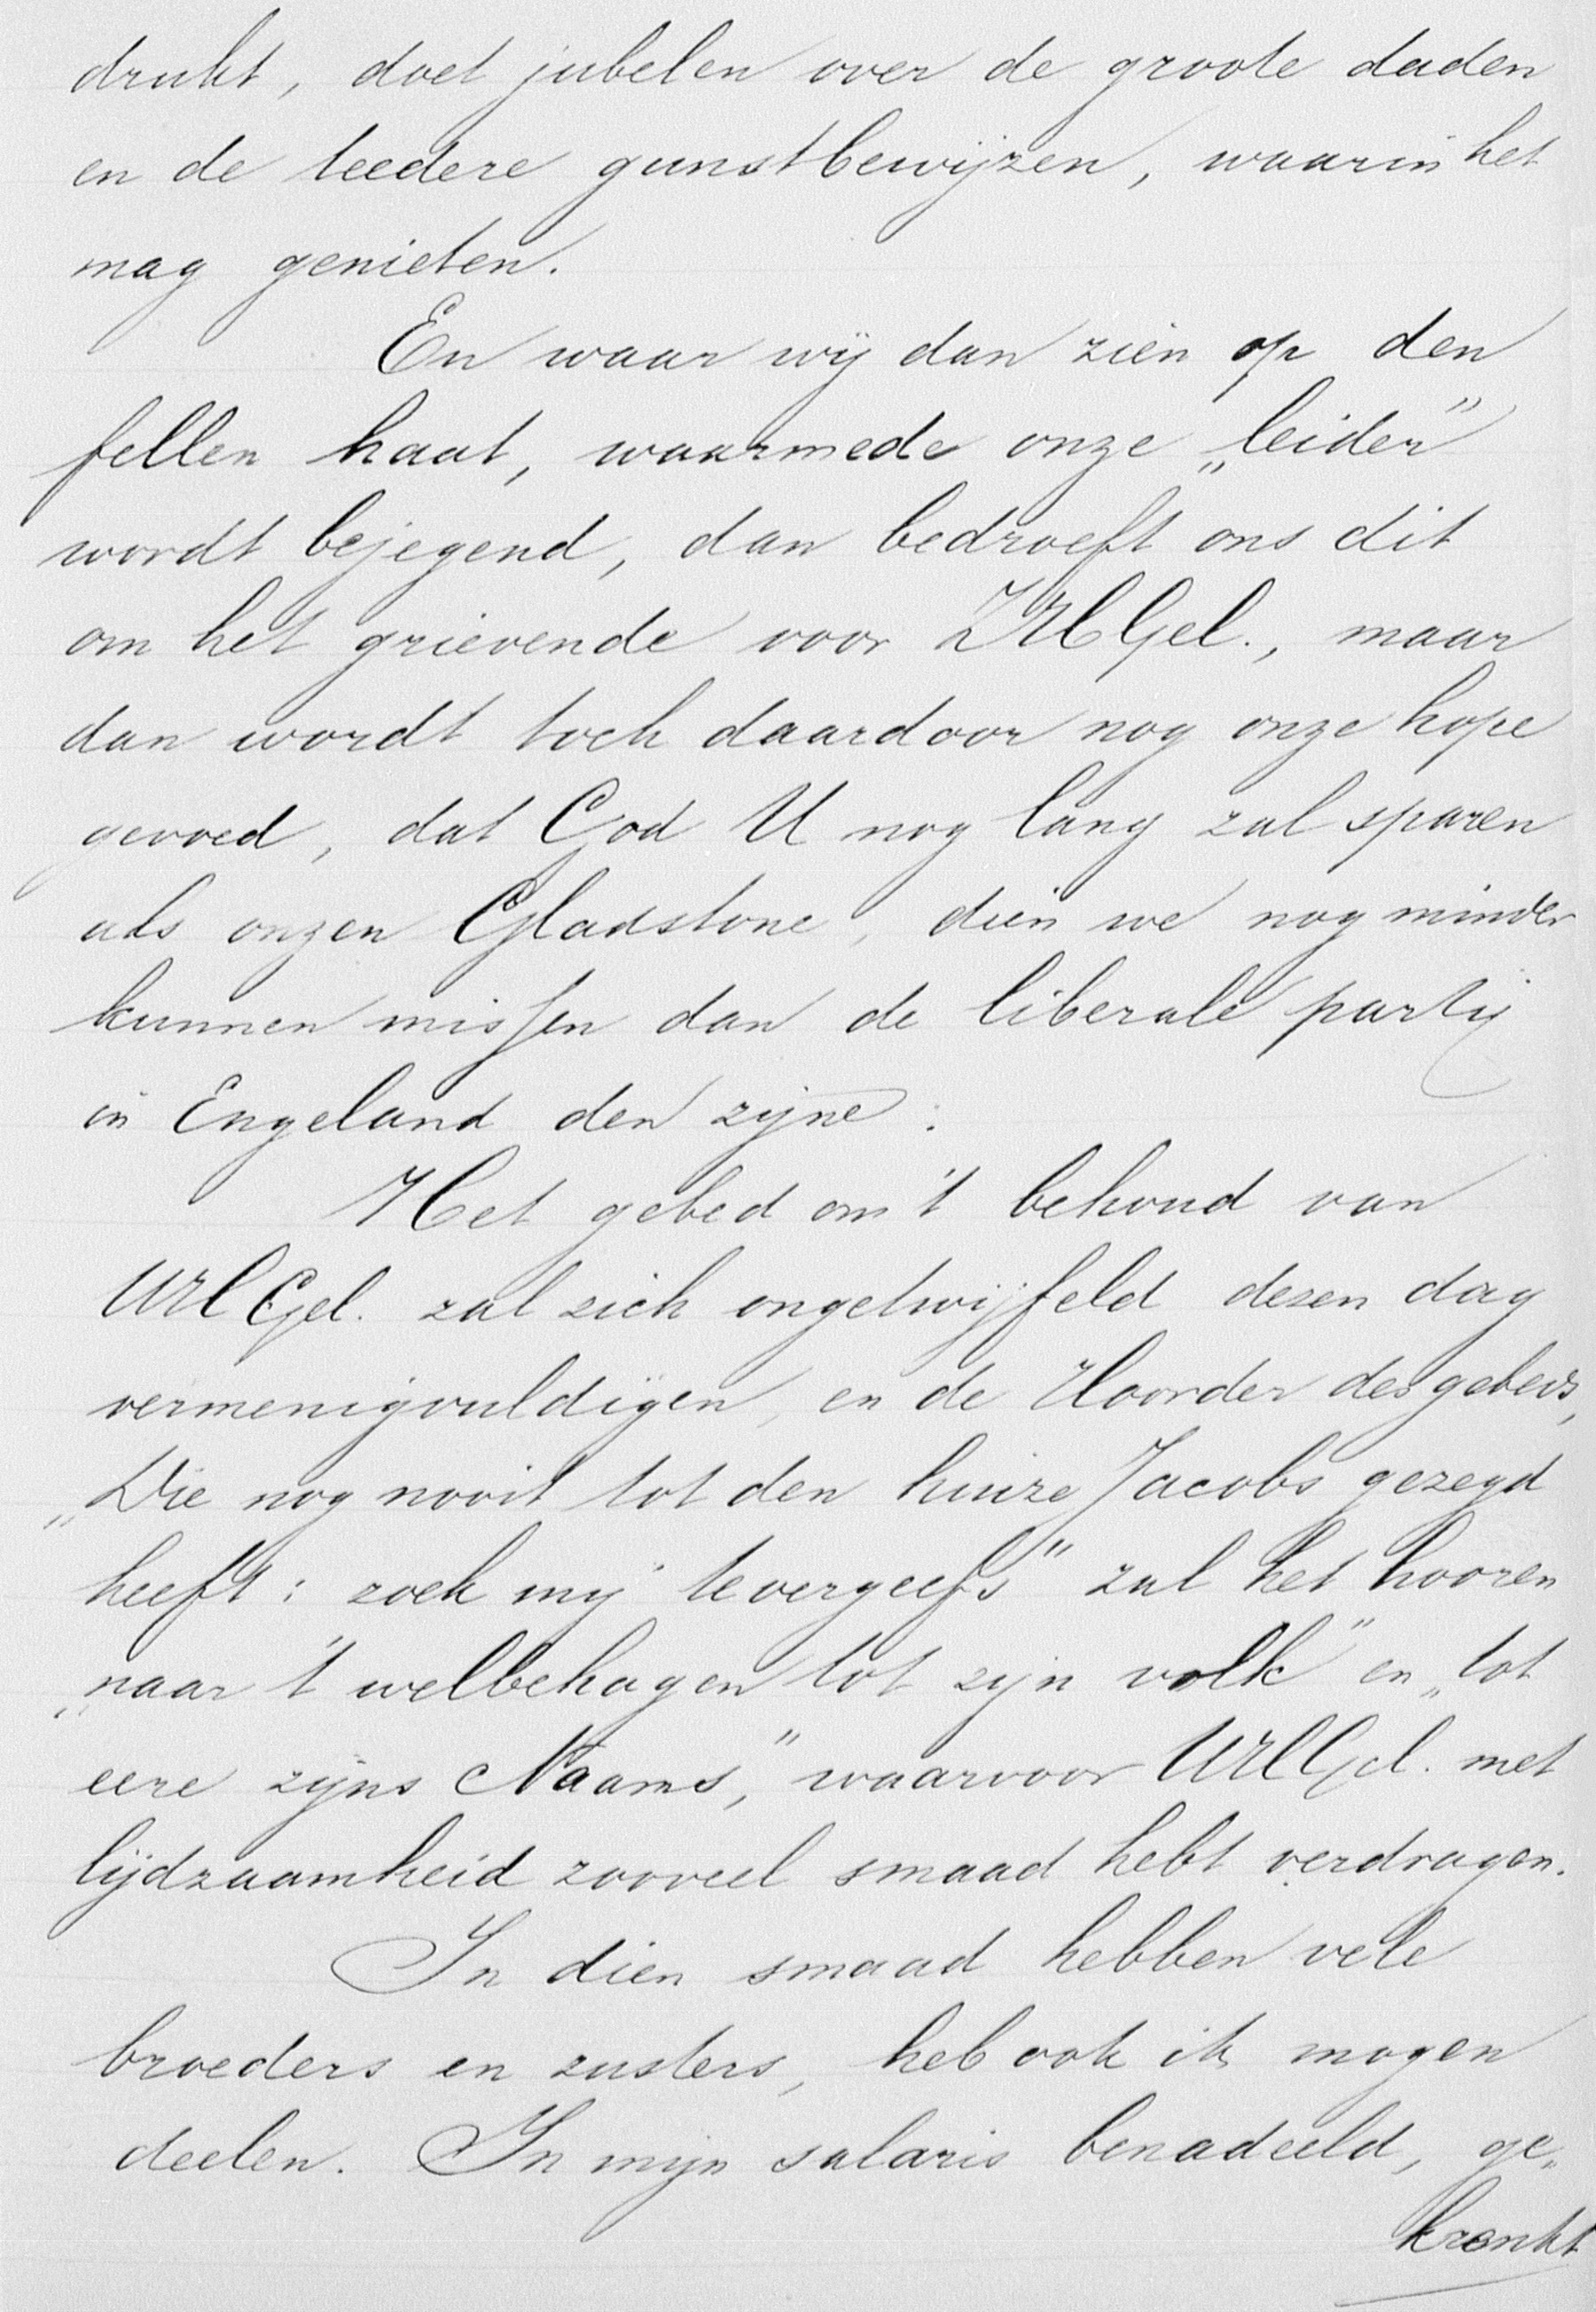 drukt, doet jubelen over de groote daden
en de teedere gunstbewijzen, waarin het
mag genieten.
En waar wij dan zien op den
fellen haat, waarmede onze „leider"
wordt bejegend, dan bedroeft ons dit
om het grievende voor ZHGel., maar
dan wordt toch daardoor nog onze hope
gevoed, dat God U nog lang zal sparen
als onzen Gladstone, dien we nog minder
kunnen missen dan de liberale partij
in Engeland den zijne.
Het gebed om 't behoud van
UHGel. zal zich ongetwijfeld dezen dag
vermenigvuldigen, en de Hoorder des gebeds,
„Die nog nooit tot den huize Jacobs gezegd
heeft: zoek mij tevergeefs" zal het hooren
„naar 't welbehagen tot zijn volk" en „tot
eere zijns Naams," waarvoor UHGel. met
lijdzaamheid zooveel smaad hebt verdragen.
In dien smaad hebben vele
broeders en zusters, heb ook ik mogen
deelen. In mijn salaris benadeeld, ge„
krenkt